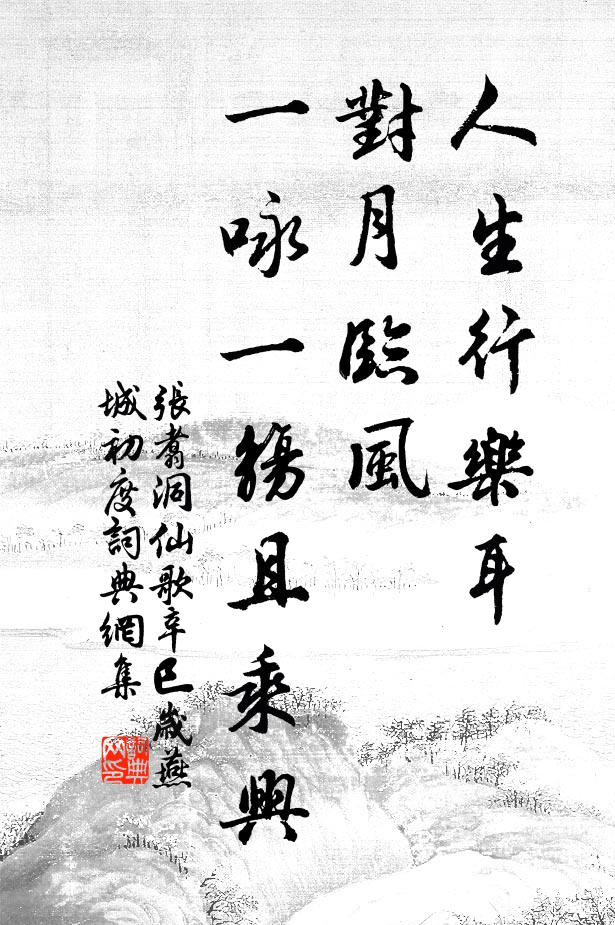 人生行樂耳
對月臨風
一咏一觴且乘興
張翥洞仙歌辛巳歲燕
城初度詞典網集
詞典
網印